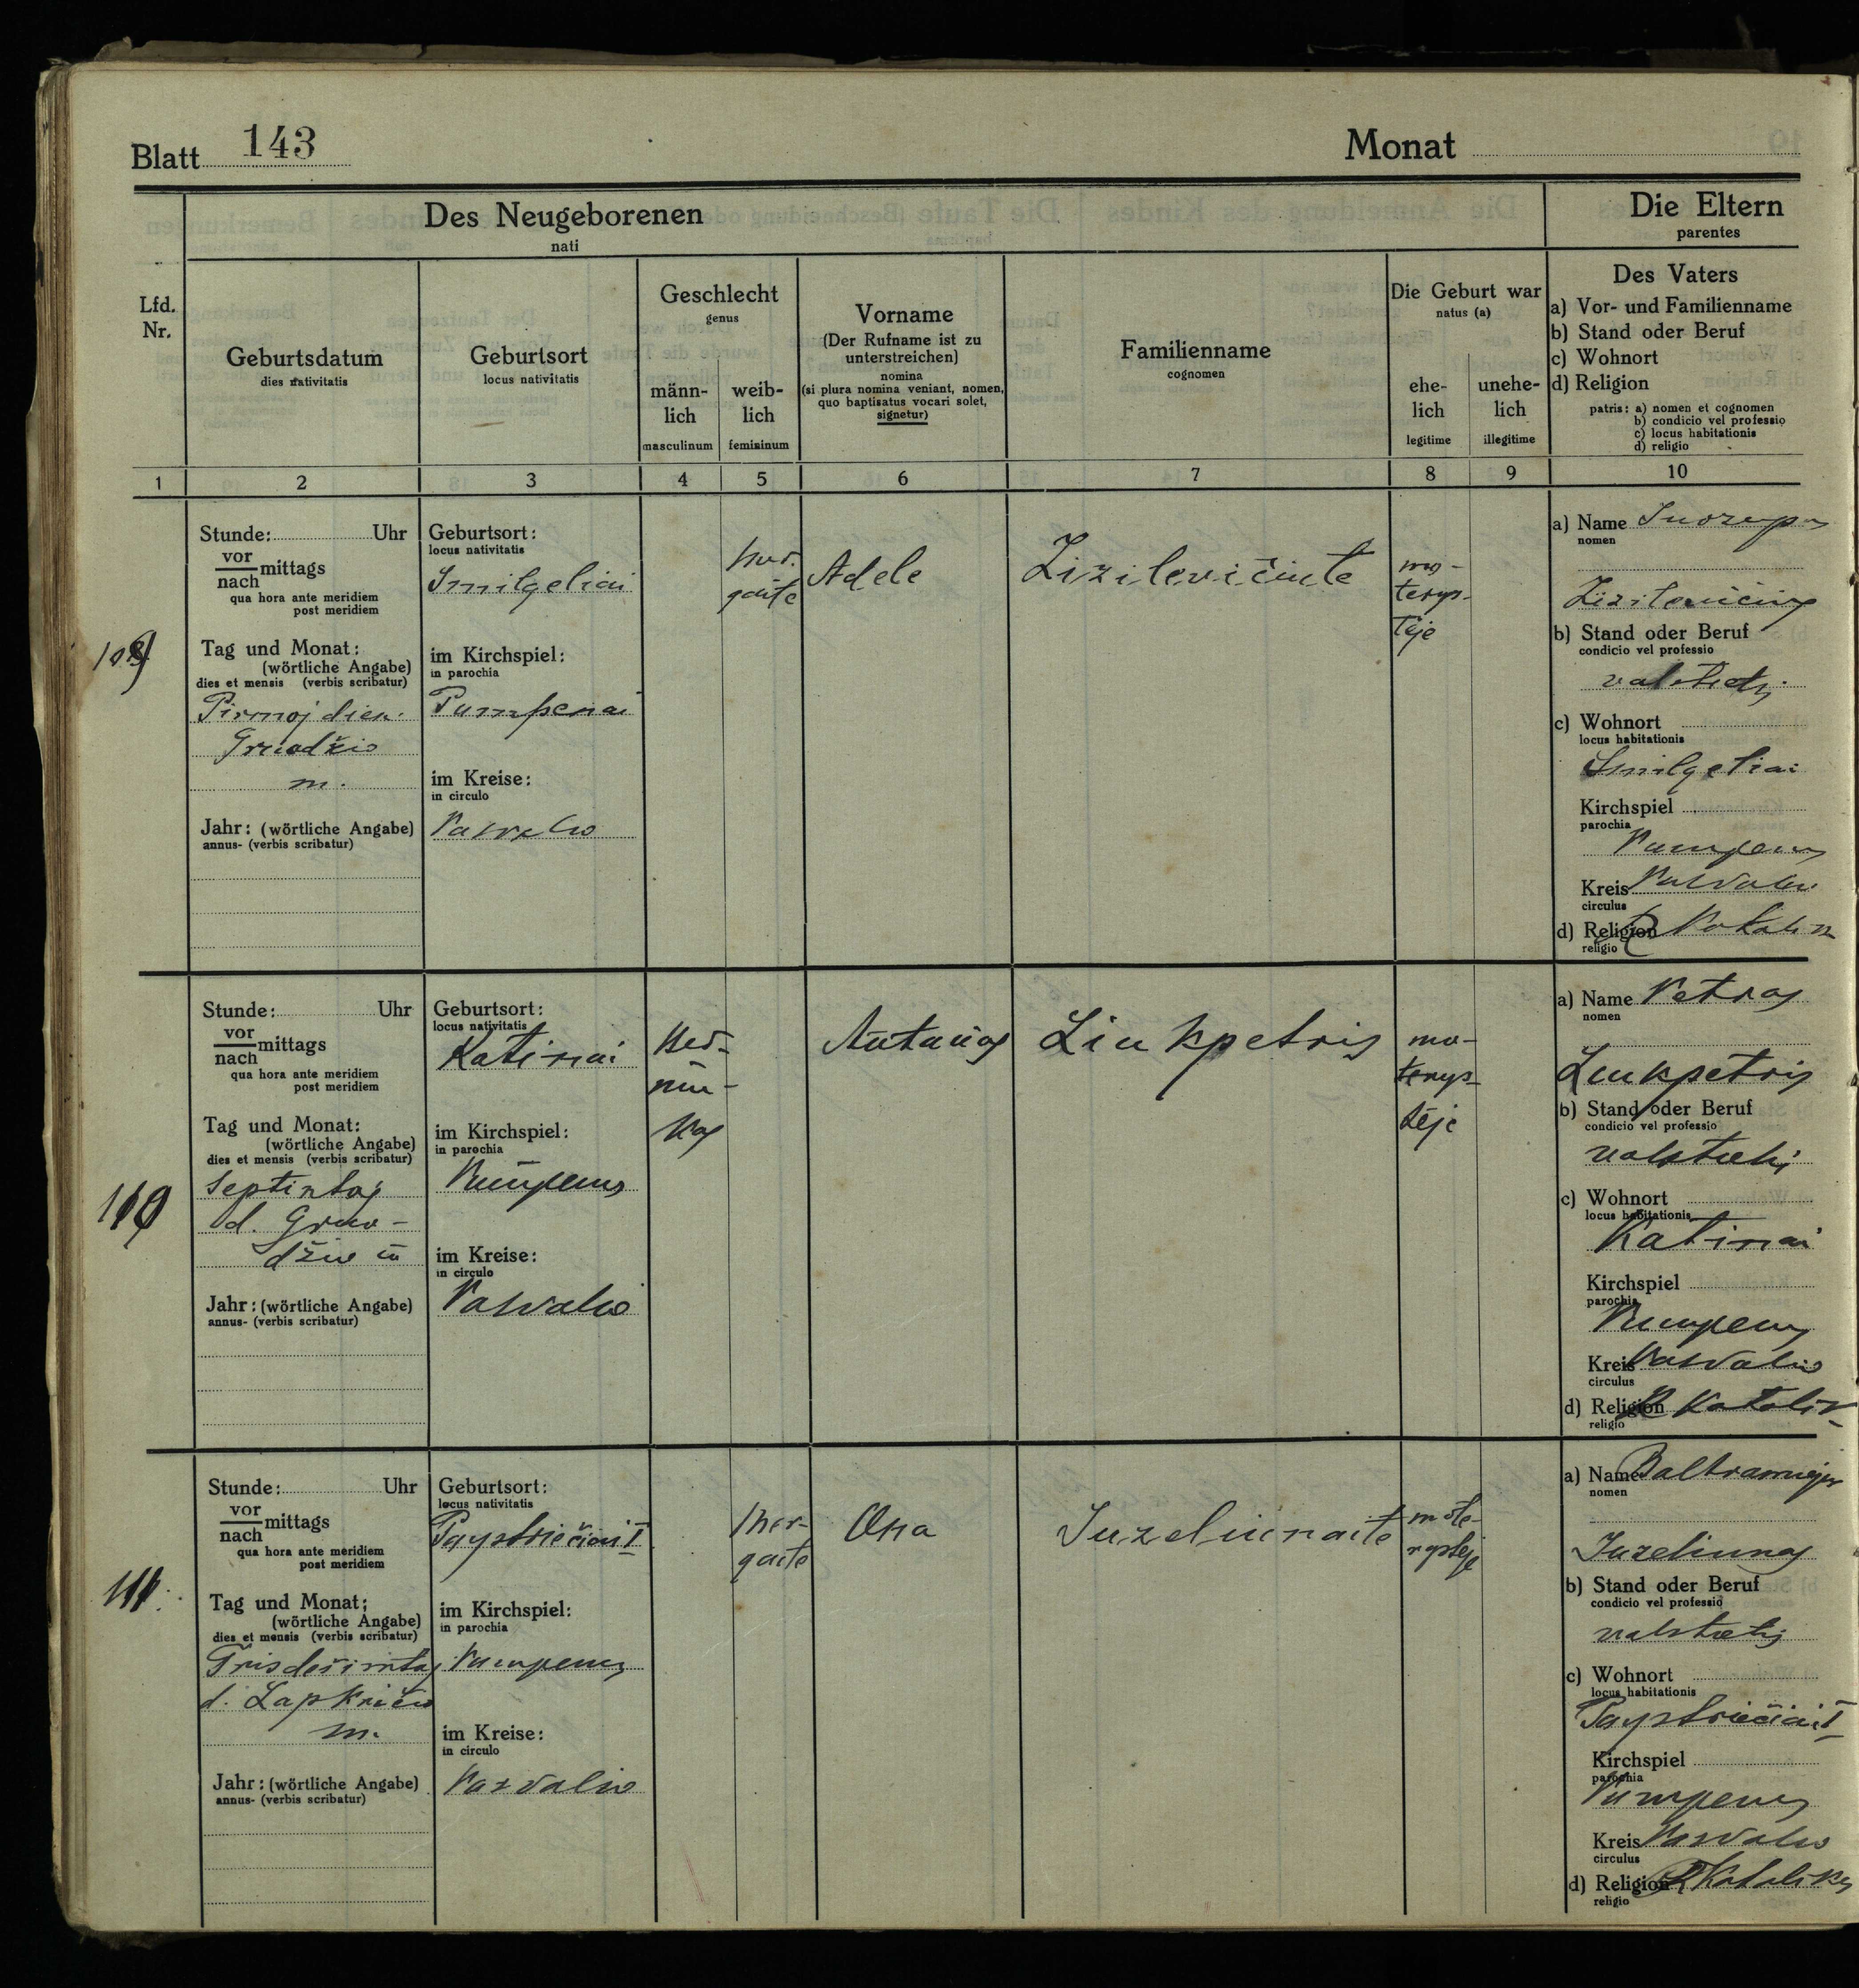 Blatt 143
Monat
Des Neugeborenen
nati
Die Eltern
parentes
Lfd.
Nr.
Geburtsdatum
dies nativitatis
Geburtsort
locus nativitatis
Geschlecht
genus
männ-
lich
masculinum
weib-
lich
femininum
Vorname
(Der Rufname ist zu
unterstreichen)
nomina
(si plura nomina veniant, nomen,
quo baptisatus vocari solet,
signetur)
Familienname
cognomen
Die Geburt war
natus (a)
ehe-
lich
legitime
unehe-
lich
illegitime
Des Vaters
a) Vor- und Familienname
b) Stand oder Beruf
c) Wohnort
d) Religion
patris: a) nomen et cognomen
b) condicio vel professio
c) locus habitationis
d) religio
1 2 3 4 5 6 7 8 9 10
109
Stunde: Uhr
vor
nach mittags
qua hora ante meridiem
post meridiem
Tag und Monat:
(wörtliche Angabe)
dies et mensis (verbis scribatur)
Pirmoj dien.
Gruodžio
m.
Jahr: (wörtliche Angabe)
annus- (verbis scribatur)
Geburtsort:
locus nativitatis
Smilgeliai
im Kirchspiel:
in parochia
Pumpėnai
im Kreise:
in circulo
Pasvalio
mer.
gaitė
Adelė
Žizilevičiutė
mo-
terys-
tėje
a) Name Juozapas
nomen
b) Stand oder Beruf
condicio vel professio
c) Wohnort
locus habitationis
Smilgeliai
Kirchspiel
parochia
Pumpėnų
Kreis Pasvalio
circulus
d) Religion R Katalik
religio
110
Stunde: Uhr
vor
nach mittags
qua hora ante meridiem
post meridiem
Tag und Monat:
(wörtliche Angabe)
dies et mensis (verbis scribatur)
Septintoj
d. Gruo-
džio m
Jahr: (wörtliche Angabe)
annus- (verbis scribatur)
Geburtsort:
locus nativitatis
Katinai
im Kirchspiel:
in parochia
Pumpėnų
im Kreise:
in circulo
Pasvalio
Ber-
niu-
kas
Antanas
Linkpetris
mo-
terys-
tėje
a) Name Petras
nomen
Linkpetris
b) Stand oder Beruf
condicio vel professio
c) Wohnort
locus habitationis
Katinai
Kirchspiel
parochia
Pumpėnų
Kreis Pasvalio
circulus
d) Religion R Katalik
religio
111.
Stunde: Uhr
vor
nach mittags
qua hora ante meridiem
post meridiem
Tag und Monat:
(wörtliche Angabe)
dies et mensis (verbis scribatur)
Trisdešimtoj
d. Lapkričio
m.
Jahr: (wörtliche Angabe)
annus- (verbis scribatur)
Geburtsort:
locus nativitatis
Papstriečiai I
im Kirchspiel:
in parochia
Pumpėnų
im Kreise:
in circulo
Pasvalio
mer-
gaitė
Ona
Juzeliunaitė
mote-
rystėje
a) Name Baltramiejus
nomen
Juzeliunas
b) Stand oder Beruf
condicio vel professio
c) Wohnort
locus habitationis
Papstriečiai I
Kirchspiel
parochia
Pumpėnų
Kreis Pasvalio
circulus
d) Religion R Katalikų
religio